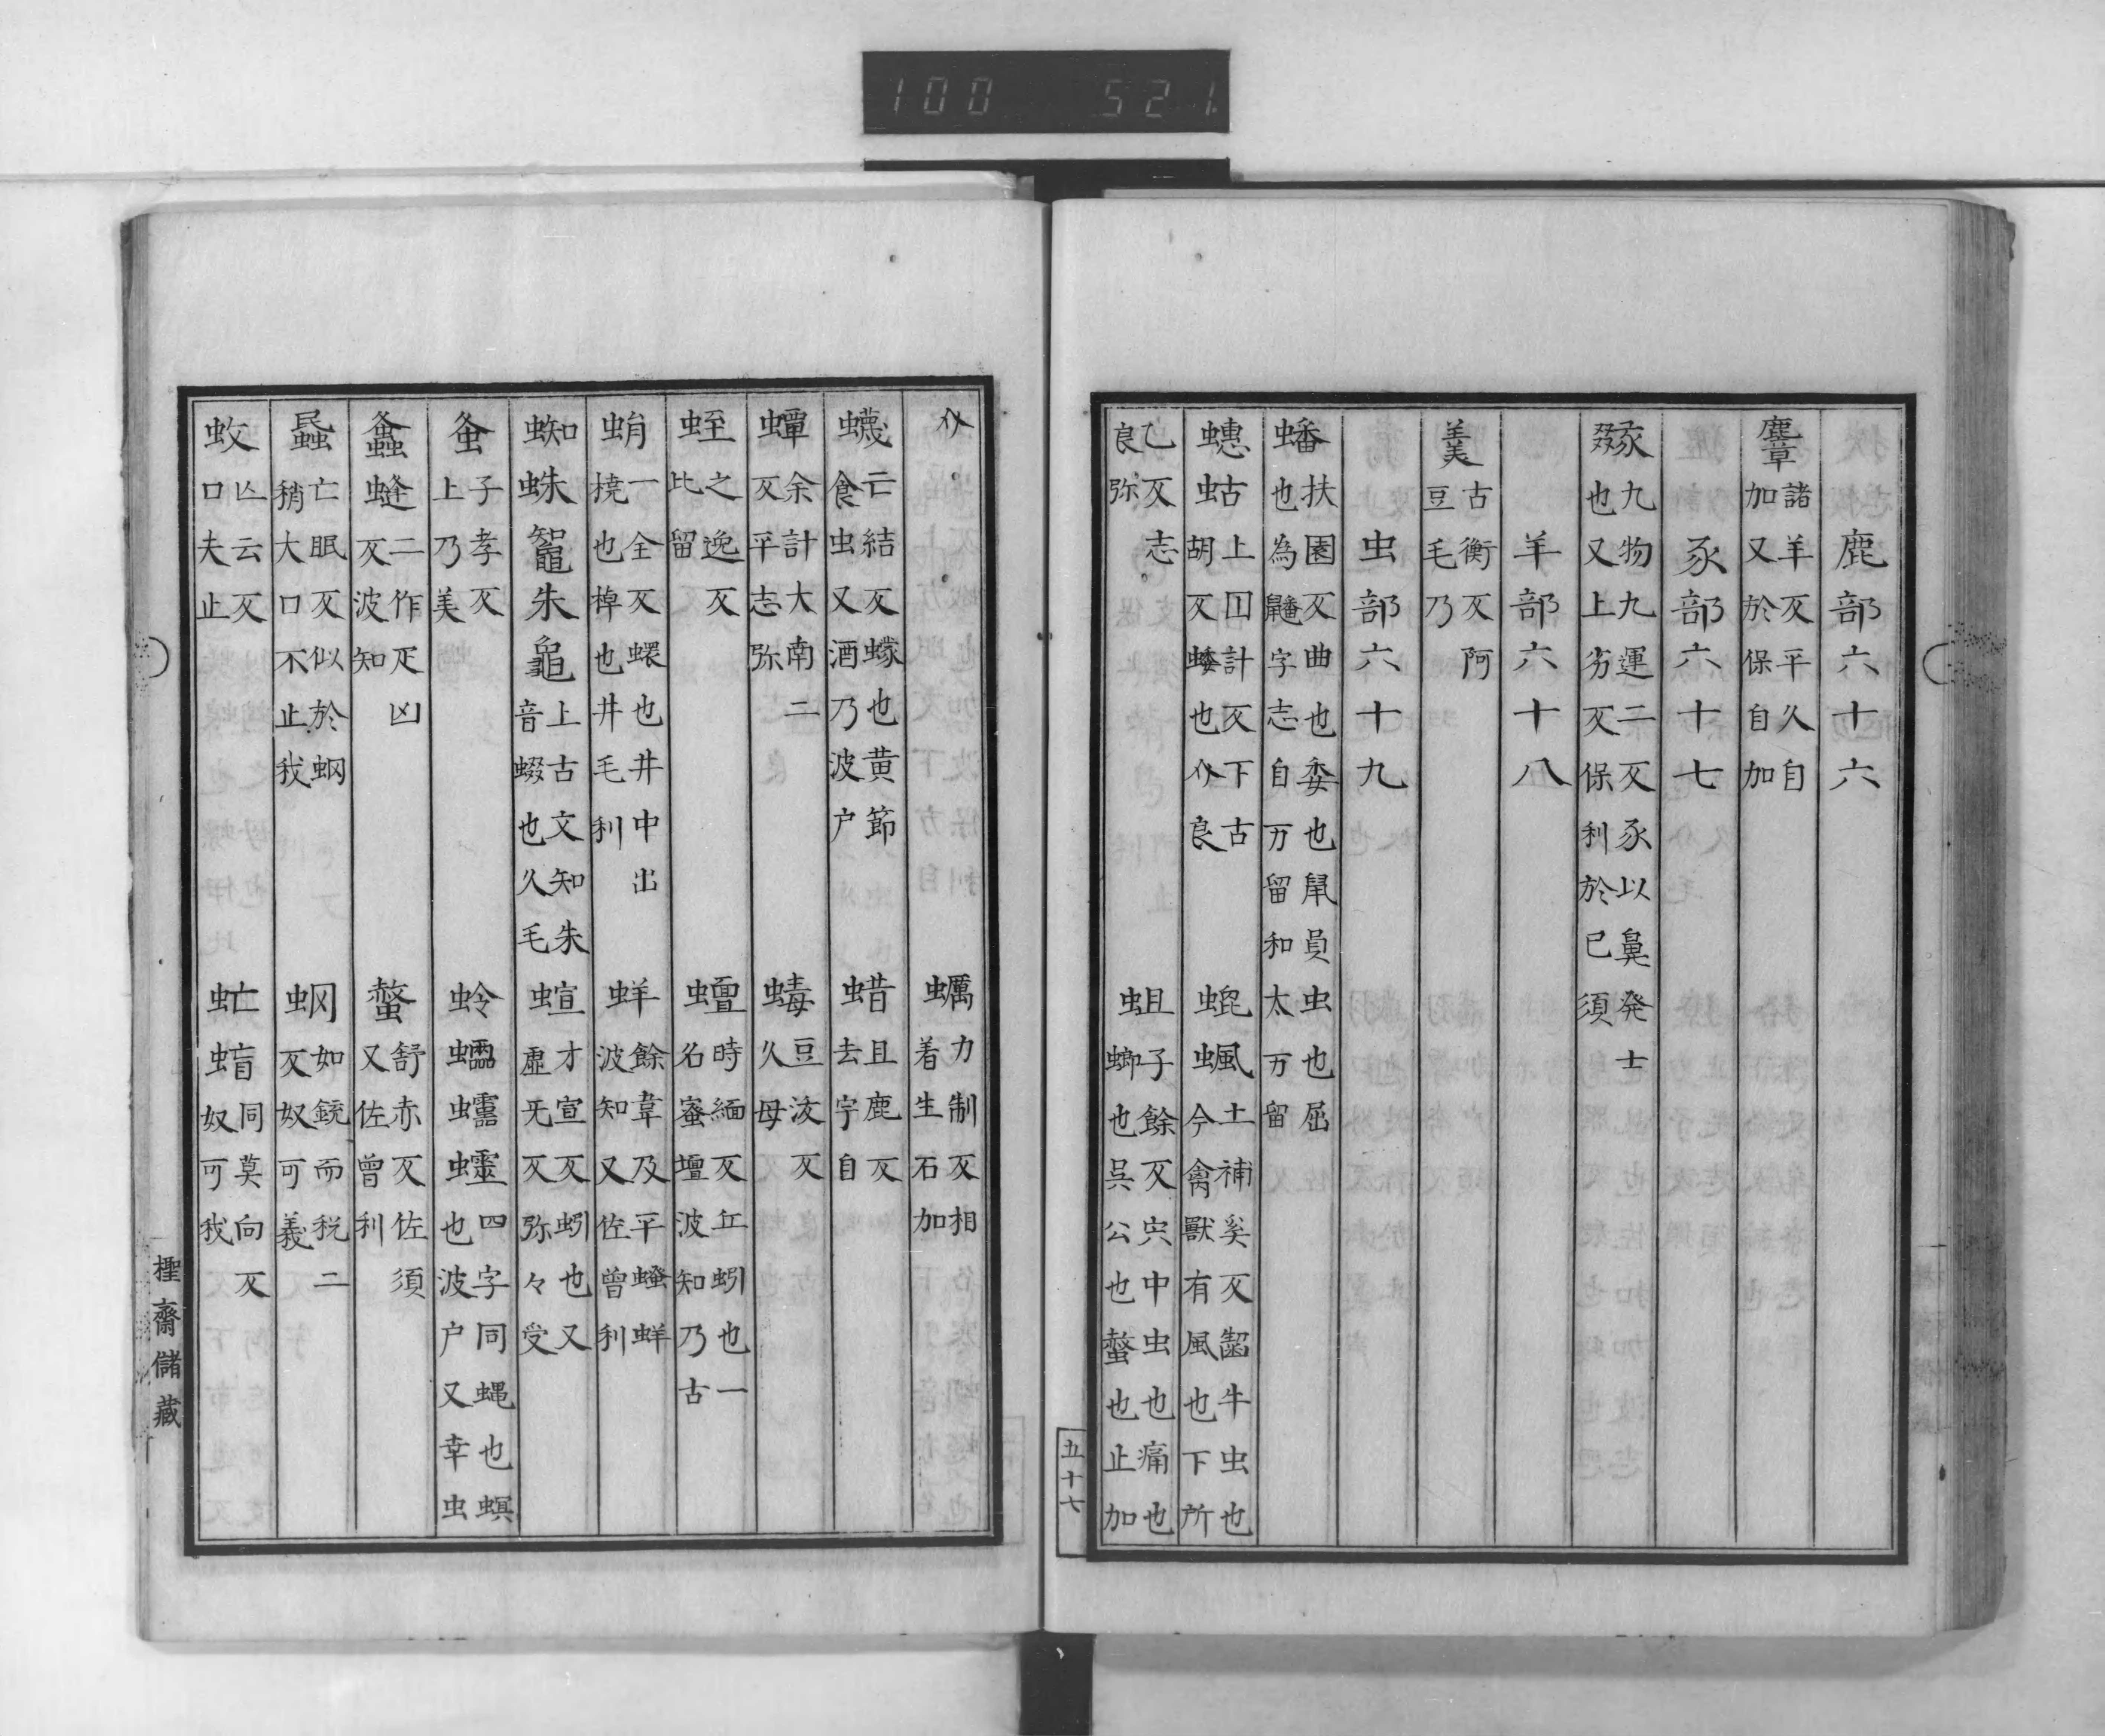 100 521
鹿部六十六
麞 諸羊反平久自
加又於保自加
豕部六十七
豩 九物九運二反豕以鼻発士
也又上劣反保利於己須
羊部六十八
羮 古衡反阿
豆毛乃
虫部六十九
蟠 扶園反曲也委也鼠員虫也屈
也為鼅字志自万留和太万留
蟪蛄 上囗計反下古
胡反蟧也介良
蜫䗋 土補奚反齧牛虫也
今禽獣有風也下所
乙反志
良弥
蛆 子餘反宍中虫也痛也
蝍也呉公也螫也止加
介
蠣 力制反相
着生石加
蠛 亡結反蠓也黄節
食虫又酒乃波户
蜡 且鹿反
去字自
蟫 余計大南二
反平志弥
䗠 豆汝反
久母
蛭 之逸反
比留
蟺 時緬反丘蚓也一
名蜜壇波知乃古
蛸 一全反蠉也井中出
橈也棹也井毛利
蛘 餘韋及平螠蛘
波知又佐曽利
蜘蛛鼅朱龜 上古文知朱
音蝃也久毛
蝖 才宣反蚓也又
虚旡反弥々受
蚤 子孝反
上乃美
蛉 蠝蠝蠝 四字同蝿也螟
也波户又幸虫
螽蜂 二作疋凶
反波知
螫 舒赤反佐須
又佐曽利
蟁 亡眠反似於蚋
稍大口不止我
蜹 如鋭而税二
反奴可義
蚊 亾云反
口夫止
䖟蝱 同莫向反
奴可我
五十七
𣝅齋儲藏